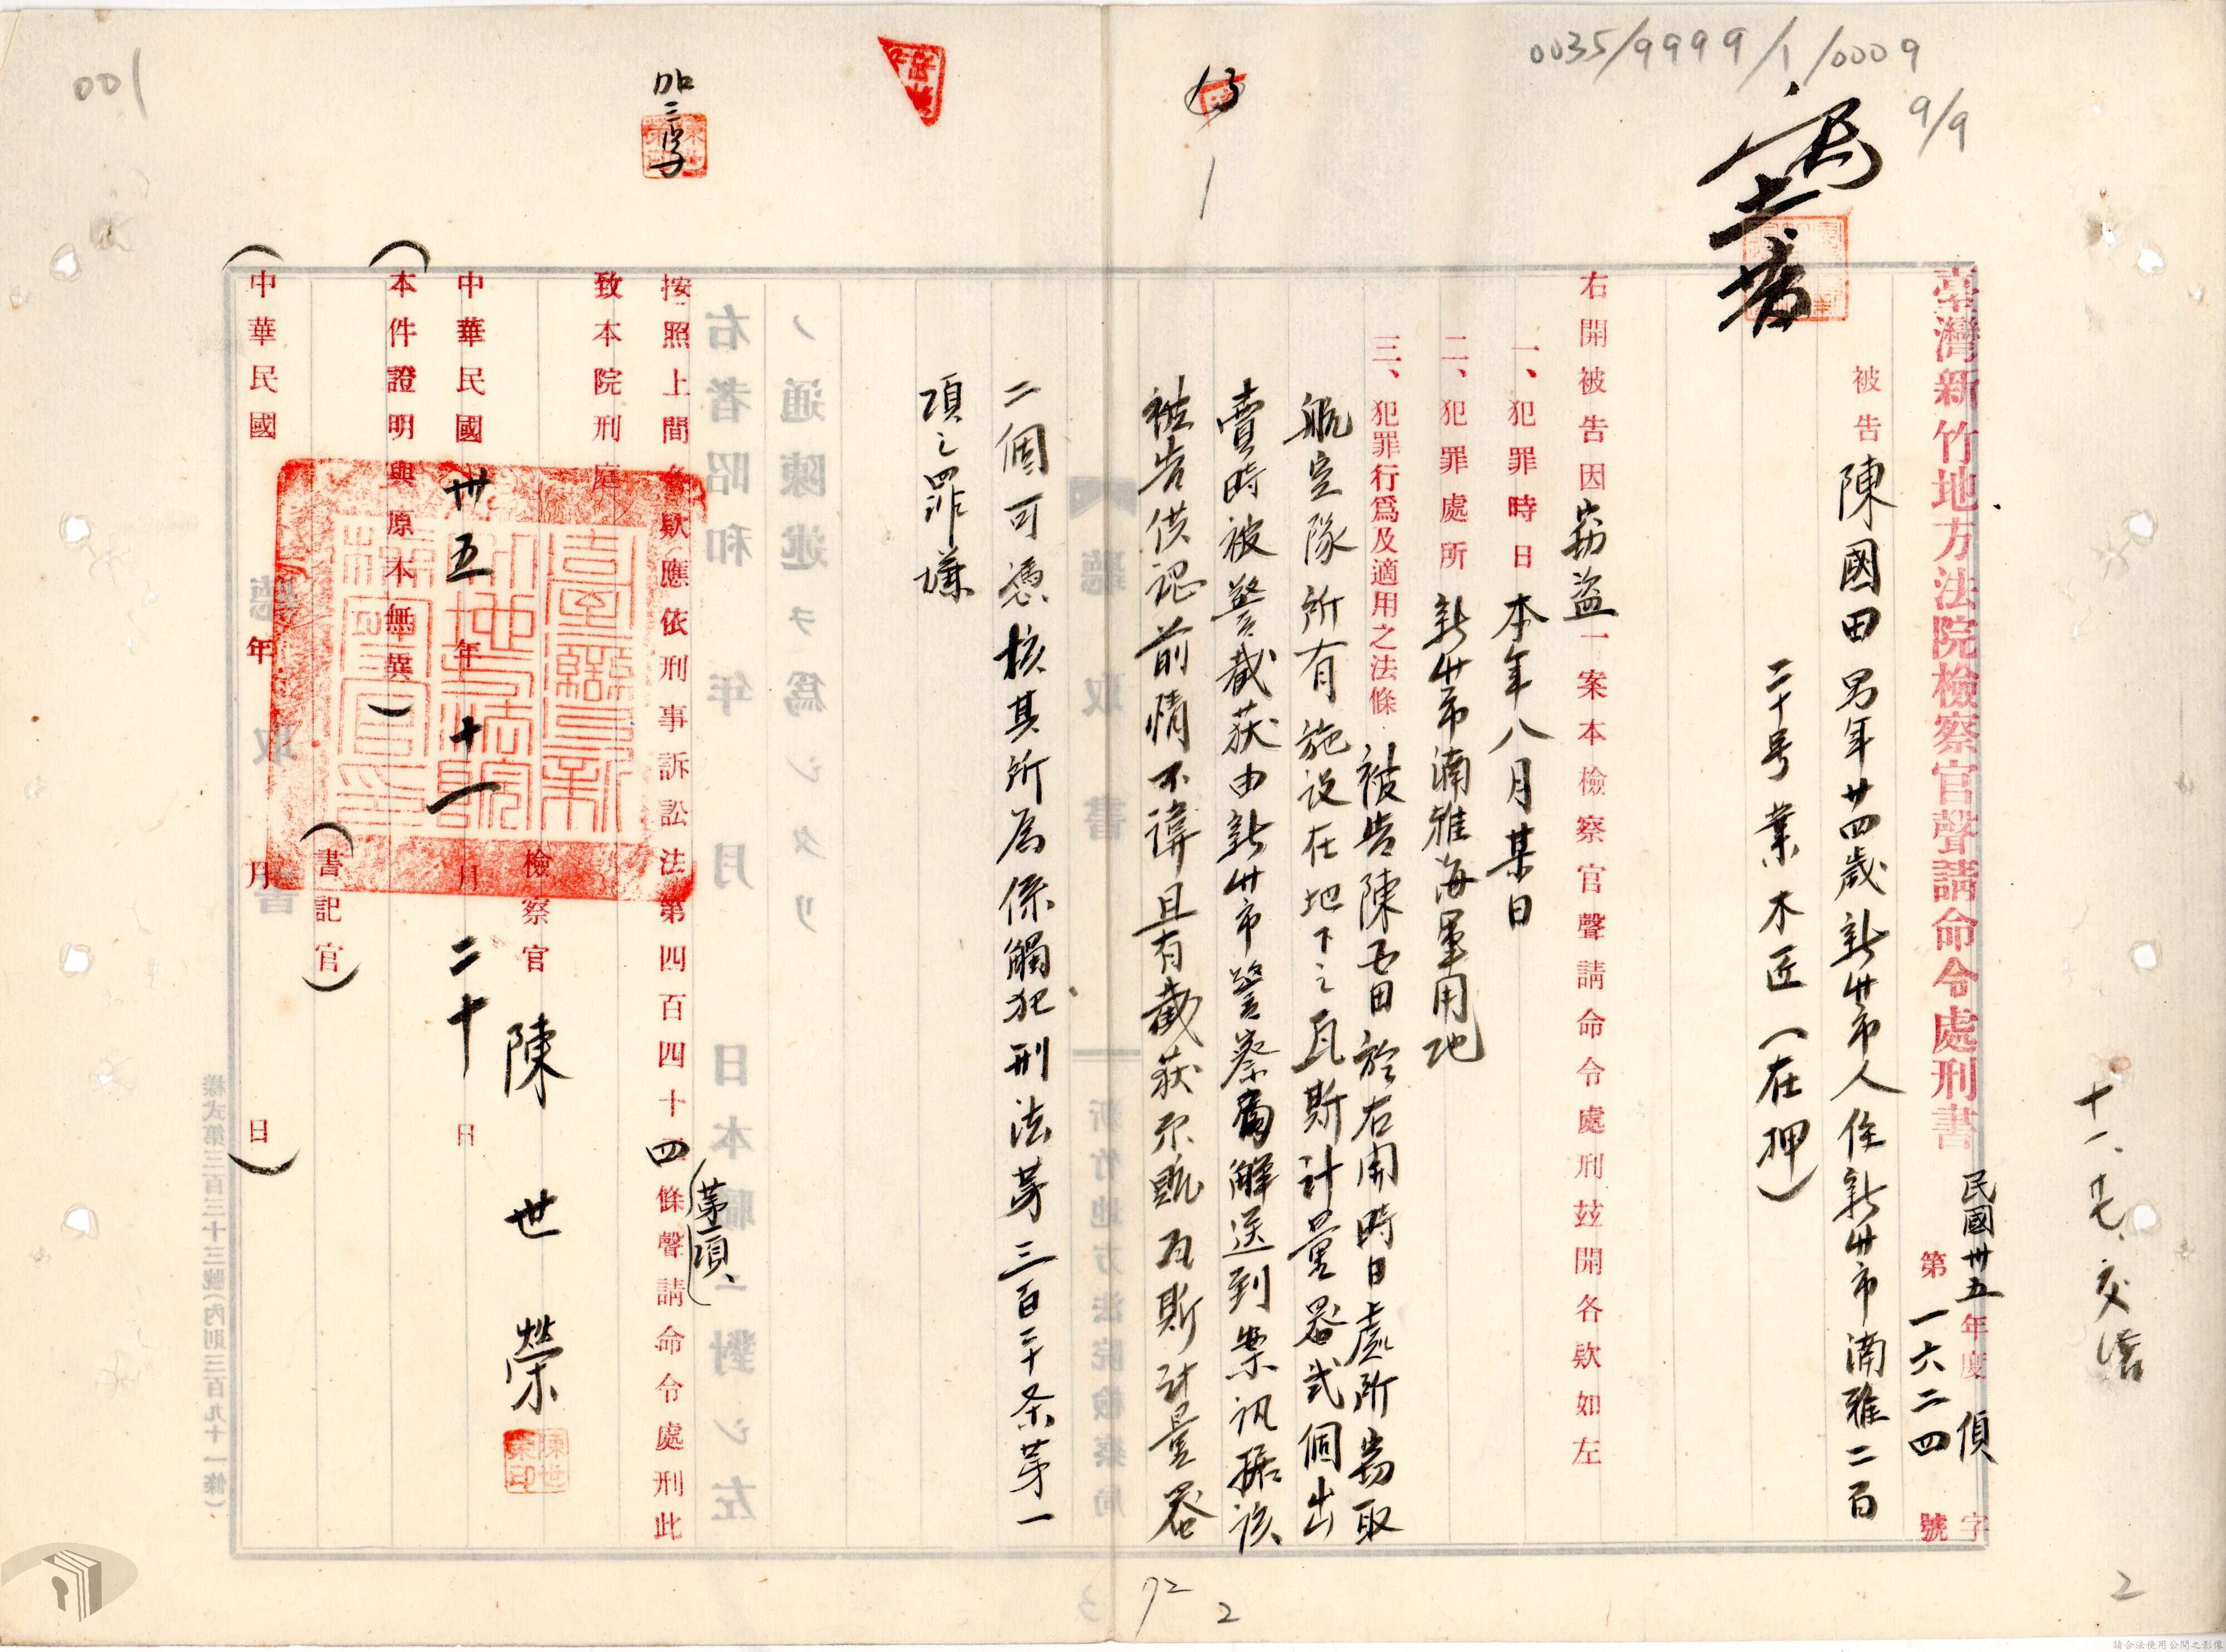 0035/9999/1/0009
9/9
001
臺灣新竹地方法院檢察官聲請命令處刑書
民國卅五年度偵字
第一六二四號
被告陳國田男年廿四歲新竹市人住新竹市湳雅二百
二十号業木匠(在押)
右開被告因竊盜一案本檢察官聲請命令處刑玆開各欵如左
一、犯罪時日本年八月某日
二、犯罪處所新竹市湳雅海軍用地
三、犯罪行爲及適用之法條被告陳國田於右開時日處所竊取
航空隊所有施设在地下之瓦斯计量器弍個出
賣時被警截获由新竹市警察局解送到案讯据该
被告供認前情不諱且有截获瓦斯计量器
二個可憑核其所為係觸犯刑法第三百二十条第一
項之罪嫌
按照上開各欵應依刑事訴訟法第四百四十四條第一項聲請命令處刑此
致本院刑庭
加三字
檢察官陳世榮
中華民國卅五年十一月二十日
(本件證明與原本無異)
(書記官)
(中華民國 年 月 日)
十一、
13
1
72
2
2
右者昭和 年 月 日本職ニ對シ左
ノ通陳述ヲ爲シタリ
聽取書
新竹地方法院檢察局
聽取書
樣式第三百三十三號(內則三百九十一條)
請合法使用公開之影像